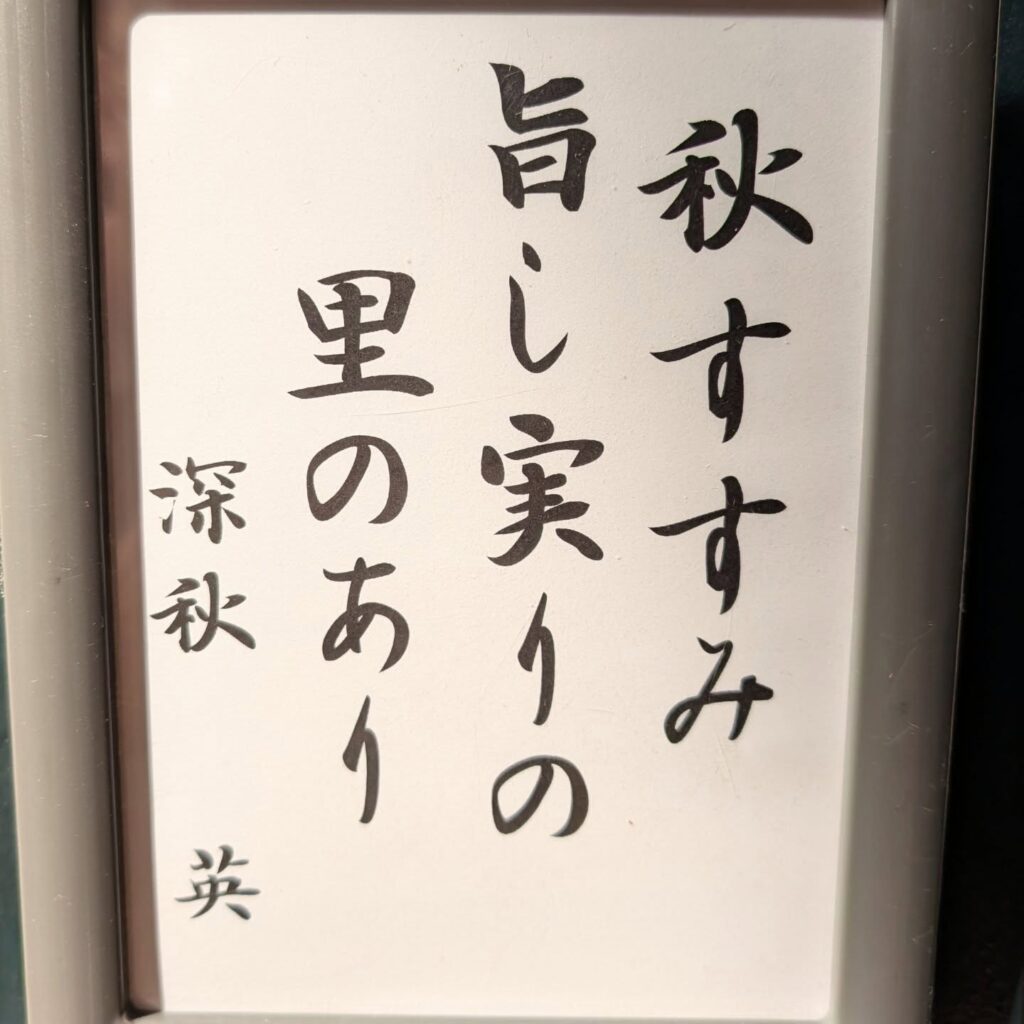 秋すすみ
旨し実りの
里のあり
深秋　英